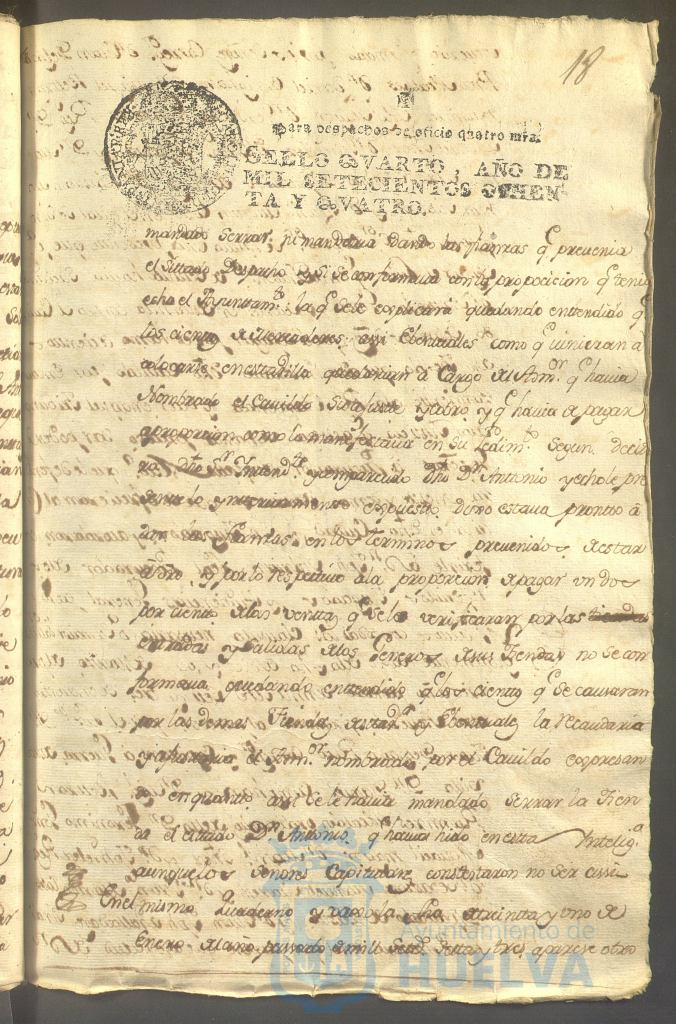 18
Para despachos de oficio quatro mrs.
SELLO QVARTO, AÑO DE
MIL SETECIENTOS OCHEN-
TA Y QVATRO.
mandado serrar, ni mandaria dando las fianzas q.e prevenia
el sittado Despacho y si se conformava con la proposicion q.e tenia
echa el Ayuntam.to la q.e se le explicará quedando entendido q.e
los cientos de Mercaderes assi Eventuales como q.e vinieran a
colocarse en esta Villa quedarian a Cargo del Adm.or q.e havia
Nombrado el Cavildo y q.e havia de pagar
a proporcion como lo manifestava en su Pedim.to segun decia
dho S.r Intend.te y comparecido dho D.n Antonio y echole pre
sente lo expuesto dixo estava promto á
dar las fianzas en los terminos prevenidos, a estar
a dro, y por lo respectivo a la proporcion de pagar un dos
por ciento de las ventas q.e se le verificaran por las
entradas y salidas de los Generos de sus Tiendas no se con
formava, quedando entendido q.e los cientos q.e se causaran
por las demas Tiendas y Eventuales la recaudaria
el Adm.or nombrado por el Cavildo expresan
do en quanto a q.e se le havia mandado serrar la Tien
da el citado D.n Antonio q.e havia sido en esta Intelig.a
aunque los Señores Capitulares contestaron no ser assi
En el mismo Quaderno y a treinta y uno de
Enero del año passado de mil sett.s setta y tres aparese otro
Ayuntamiento de
HUELVA